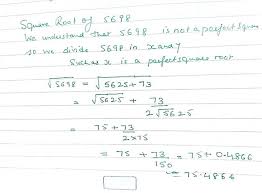 Square Root of 5698
We understand that 5698 is not a perfect square
so we divide 5698 in x and y
Such as x is a perfect square root
√5698 = √5625+73
= √5625 + 73/2√5625
= 75 + 73/2×75
= 75 + 73/150 = 75+0.4866
= 75.4866